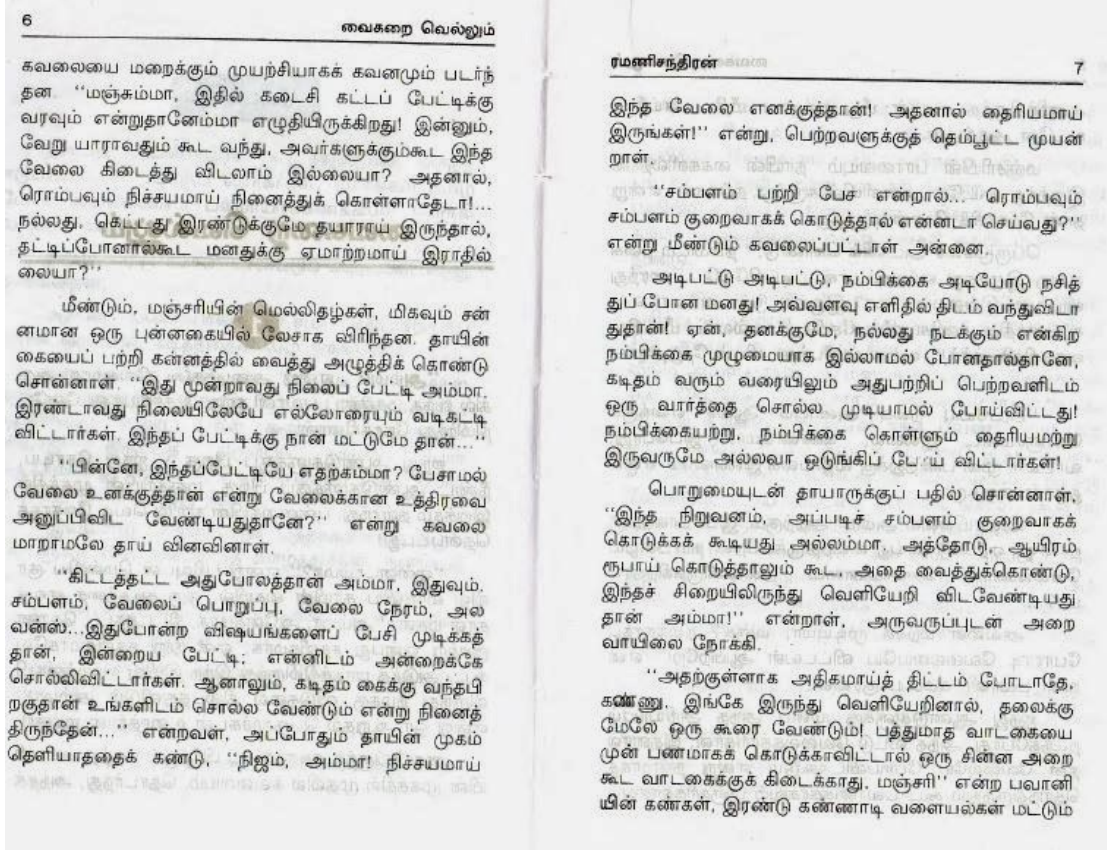 6
வைகறை வெல்லும்
கவலையை மறைக்கும் முயற்சியாகக் கவனமும் படர்ந்
தன. “மஞ்சும்மா, இதில் கடைசி கட்டப் பேட்டிக்கு
வரவும் என்றுதானேம்மா எழுதியிருக்கிறது! இன்னும்,
வேறு யாராவதும் கூட வந்து, அவர்களுக்கும்கூட இந்த
வேலை கிடைத்து விடலாம் இல்லையா? அதனால்,
ரொம்பவும் நிச்சயமாய் நினைத்துக் கொள்ளாதேடா!...
நல்லது, கெட்டது இரண்டுக்குமே தயாராய் இருந்தால்,
தட்டிப்போனால்கூட மனதுக்கு ஏமாற்றமாய் இராதில்
லையா?”
மீண்டும், மஞ்சரியின் மெல்லிதழ்கள், மிகவும் சன்
னமான ஒரு புன்னகையில் லேசாக விரிந்தன. தாயின்
கையைப் பற்றி கன்னத்தில் வைத்து அழுத்திக் கொண்டு
சொன்னாள். “இது மூன்றாவது நிலைப் பேட்டி அம்மா.
இரண்டாவது நிலையிலேயே எல்லோரையும் வடிகட்டி
விட்டார்கள். இந்தப் பேட்டிக்கு நான் மட்டுமே தான்...”
“பின்னே, இந்தப்பேட்டியே எதற்கம்மா? பேசாமல்
வேலை உனக்குத்தான் என்று வேலைக்கான உத்திரவை
அனுப்பிவிட வேண்டியதுதானே?” என்று கவலை
மாறாமலே தாய் வினவினாள்.
“கிட்டத்தட்ட அதுபோலத்தான் அம்மா, இதுவும்.
சம்பளம், வேலைப் பொறுப்பு, வேலை நேரம், அல
வன்ஸ்...இதுபோன்ற விஷயங்களைப் பேசி முடிக்கத்
தான், இன்றைய பேட்டி; என்னிடம் அன்றைக்கே
சொல்லிவிட்டார்கள். ஆனாலும், கடிதம் கைக்கு வந்தபி
றகுதான் உங்களிடம் சொல்ல வேண்டும் என்று நினைத்
திருந்தேன்...” என்றவள், அப்போதும் தாயின் முகம்
தெளியாததைக் கண்டு, “நிஜம், அம்மா! நிச்சயமாய்
ரமணிசந்திரன்
7
இந்த வேலை எனக்குத்தான்! அதனால் தைரியமாய்
இருங்கள்!” என்று, பெற்றவளுக்குத் தெம்பூட்ட முயன்
றாள்.
“சம்பளம் பற்றி பேச என்றால்... ரொம்பவும்
சம்பளம் குறைவாகக் கொடுத்தால் என்னடா செய்வது?”
என்று மீண்டும் கவலைப்பட்டாள் அன்னை.
அடிபட்டு அடிபட்டு, நம்பிக்கை அடியோடு நசித்
துப் போன மனது! அவ்வளவு எளிதில் திடம் வந்துவிடா
துதான்! ஏன், தனக்குமே, நல்லது நடக்கும் என்கிற
நம்பிக்கை முழுமையாக இல்லாமல் போனதால்தானே,
கடிதம் வரும் வரையிலும் அதுபற்றிப் பெற்றவளிடம்
ஒரு வார்த்தை சொல்ல முடியாமல் போய்விட்டது!
நம்பிக்கையற்று, நம்பிக்கை கொள்ளும் தைரியமற்று
இருவருமே அல்லவா ஒடுங்கிப் போய் விட்டார்கள்!
பொறுமையுடன் தாயாருக்குப் பதில் சொன்னாள்.
“இந்த நிறுவனம், அப்படிச் சம்பளம் குறைவாகக்
கொடுக்கக் கூடியது அல்லம்மா. அத்தோடு, ஆயிரம்
ரூபாய் கொடுத்தாலும் கூட, அதை வைத்துக்கொண்டு,
இந்தச் சிறையிலிருந்து வெளியேறி விடவேண்டியது
தான் அம்மா!” என்றாள், அருவருப்புடன் அறை
வாயிலை நோக்கி.
“அதற்குள்ளாக அதிகமாய்த் திட்டம் போடாதே,
கண்ணு. இங்கே இருந்து வெளியேறினால், தலைக்கு
மேலே ஒரு கூரை வேண்டும்! பத்துமாத வாடகையை
முன் பணமாகக் கொடுக்காவிட்டால் ஒரு சின்ன அறை
கூட வாடகைக்குக் கிடைக்காது, மஞ்சரி” என்ற பவானி
யின் கண்கள், இரண்டு கண்ணாடி வளையல்கள் மட்டும்